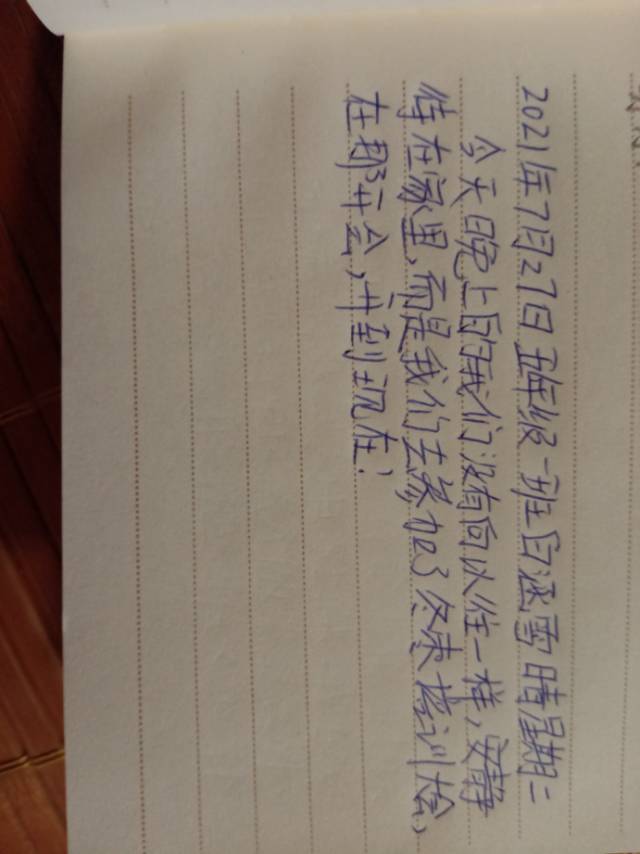 2021年7月27日 五年级一班 白涵雪 晴 星期二
今天晚上的我们没有向以往一样，安静
待在家里，而是我们去参加了冬末培训会，
在那开会，开到现在！